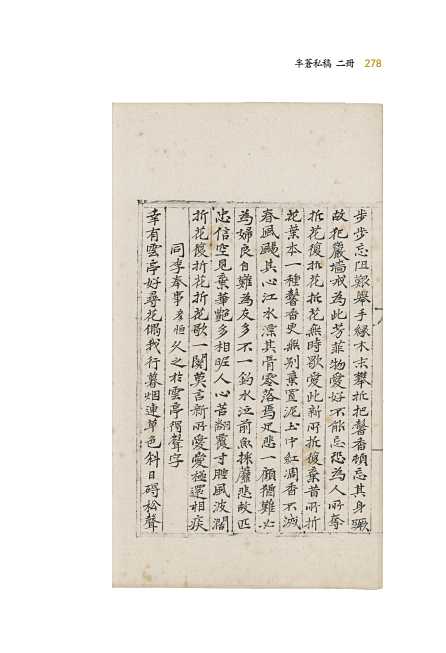 半蒼私稿 二冊 278
步步忘阻艱舉手緣木末攀折把馨香頓忘其身厥
故犯巖墻戒為此芳菲物愛好不能忘恐為人所奪
折花復折花折花無時歇愛此新所折復棄昔所折
花葉本一種馨香更無別棄置泥土中紅凋香不滅
春風颺其心江水漂其骨零落焉足悲一顧獨難必
為婦良自難為友多不一釣水泣前魚採蘼悲故匹
忠信空見棄華艷多相昵人心苦翻覆寸腫風波濶
折花復折花折花歌一闋莫言新所愛愛極還相疾
同李奉事彦恒久之於雲亭得聲字
幸有雲亭好尋花偶我行暮烟連草色斜日碍松聲